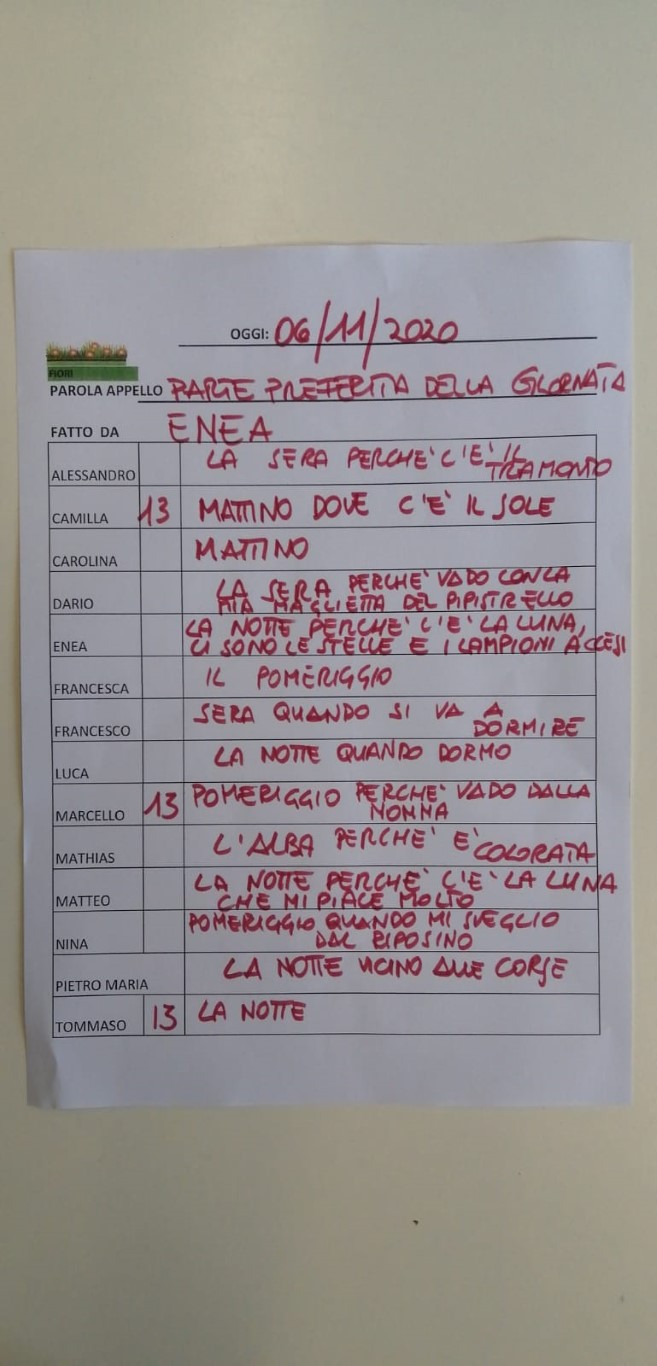 OGGI: 06/11/2020
FIORI
PAROLA APPELLO PARTE PREFERITA DELLA GIORNATA
FATTO DA ENEA
ALESSANDRO LA SERA PERCHE' C'E' IL
TRAMONTO
CAMILLA 13 MATTINO DOVE C'E' IL SOLE
CAROLINA MATTINO
DARIO LA SERA PERCHE' VADO CON LA
MIA MAGLIETTA DEL PIPISTRELLO
ENEA LA NOTTE PERCHE' C'E' LA LUNA,
CI SONO LE STELLE E I LAMPIONI ACCESI
FRANCESCA IL POMERIGGIO
FRANCESCO SERA QUANDO SI VA A
DORMIRE
LUCA LA NOTTE QUANDO DORMO
MARCELLO 13 POMERIGGIO PERCHE' VADO DALLA
NONNA
MATHIAS L'ALBA PERCHE' E'
COLORATA
MATTEO LA NOTTE PERCHE' C'E' LA LUNA
CHE MI PIACE MOLTO
NINA POMERIGGIO QUANDO MI SVEGLIO
DAL RIPOSINO
PIETRO MARIA LA NOTTE VICINO ALLE CORSE
TOMMASO 13 LA NOTTE